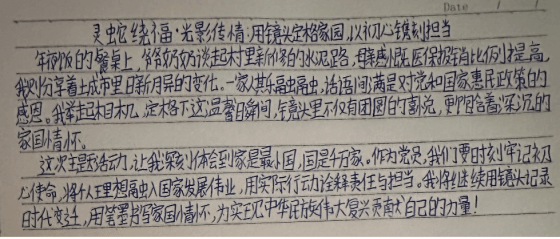 Date
灵蛇绕福·光影传情:用镜头定格家国,以初心镌刻担当
年夜饭的餐桌上,爷爷奶奶谈起村里新修的水泥路,母亲感慨医保报销比例提高,
我则分享着上城市里日新月异的变化。一家人其乐融融,话语间满是对党和国家惠民政策的
感恩。我举起相机,定格下这温馨瞬间,镜头里不仅有团圆的喜悦,更饱含着深沉的
家国情怀。
这次主题活动,让我深刻体会到家是最小国,国是千万家。作为党员,我们要时刻牢记初
心使命,将个人理想融入国家发展伟业,用实际行动诠释责任与担当。我将继续用镜头记录
时代变迁,用笔墨书写家国情怀,为实现中华民族伟大复兴贡献自己的力量!